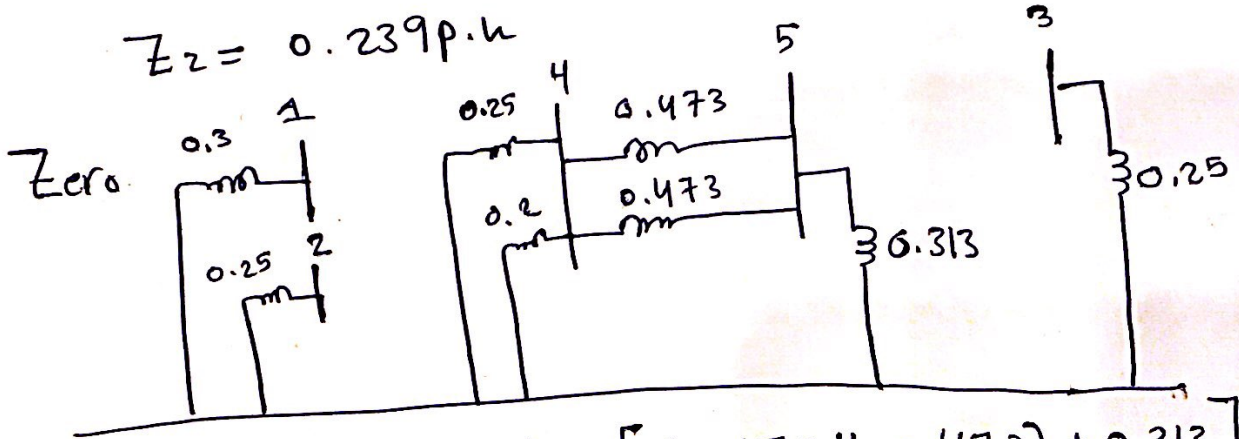 Z2 = 0.239 p.u
Zero
0.3
1
0.25
2
0.25
4
0.473
0.2
0.473
5
0.313
3
0.25